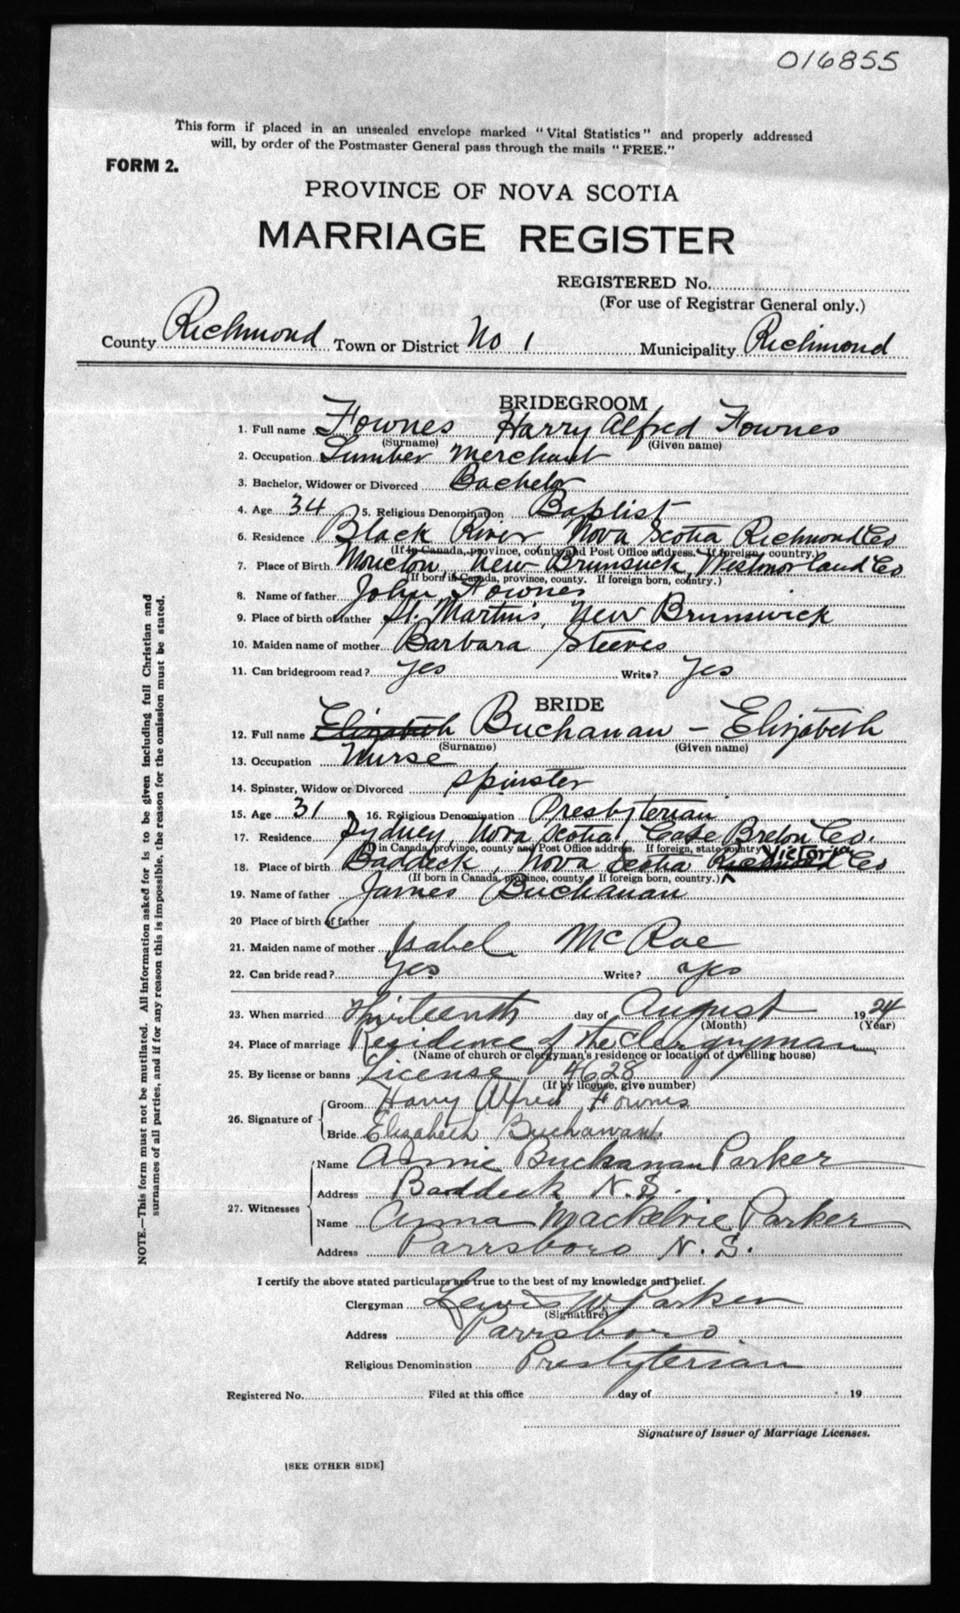 016855
This form if placed in an unsealed envelope marked "Vital Statistics" and properly addressed
will, by order of the Postmaster General pass through the mails "FREE."
FORM 2.
PROVINCE OF NOVA SCOTIA
MARRIAGE REGISTER
REGISTERED No.
(For use of Registrar General only.)
County Richmond Town or District No 1 Municipality Richmond
BRIDEGROOM
1. Full name Fownes Harry Alfred Fownes
(Surname) (Given name)
2. Occupation Lumber Merchant
3. Bachelor, Widower or Divorced Bachelor
4. Age 34 5. Religious Denomination Baptist
6. Residence Black River Nova Scotia Richmond Co
(If in Canada, province, county and Post Office address. If foreign, country.)
7. Place of Birth Moncton New Brunswick, Westmorland Co
(If born in Canada, province, county. If foreign born, country.)
8. Name of father John Fownes
9. Place of birth of father St. Martins, New Brunswick
10. Maiden name of mother Barbara Steeves
11. Can bridegroom read? Yes Write? Yes
BRIDE
12. Full name Elizabeth Buchanan - Elizabeth
(Surname) (Given name)
13. Occupation Nurse
14. Spinster, Widow or Divorced Spinster
15. Age 31 16. Religious Denomination Presbyterian
17. Residence Sydney, Nova Scotia, Cape Breton Co.
in Canada, province, county and Post Office address. If foreign, state country
Victoria
18. Place of birth Baddeck, Nova Scotia Richmond Co
(If born in Canada, province, county. If foreign born, country.)
19. Name of father James Buchanan
20 Place of birth of father
21. Maiden name of mother Isabel McRae
22. Can bride read? Yes Write? Yes
23. When married Thirteenth day of August 1924
(Month) (Year)
24. Place of marriage Residence of the Clergyman
(Name of church or clergyman's residence or location of dwelling house)
25. By license or banns License 4628
(If by license, give number)
26. Signature of Groom Harry Alfred Fownes
Bride Elizabeth Buchanan
27. Witnesses
Name Annie Buchanan Parker
Address Baddeck N.S.
Name Anna Mackelvie Parker
Address Parrsboro N.S.
I certify the above stated particulars are true to the best of my knowledge and belief.
Clergyman Lewis W Parker
(Signature)
Address Parrsboro
Religious Denomination Presbyterian
Registered No. Filed at this office day of 19
Signature of Issuer of Marriage Licenses.
[SEE OTHER SIDE]
NOTE.—This form must not be mutilated. All information asked for is to be given including full Christian and
surnames of all parties, and if for any reason this is impossible, the reason for the omission must be stated.